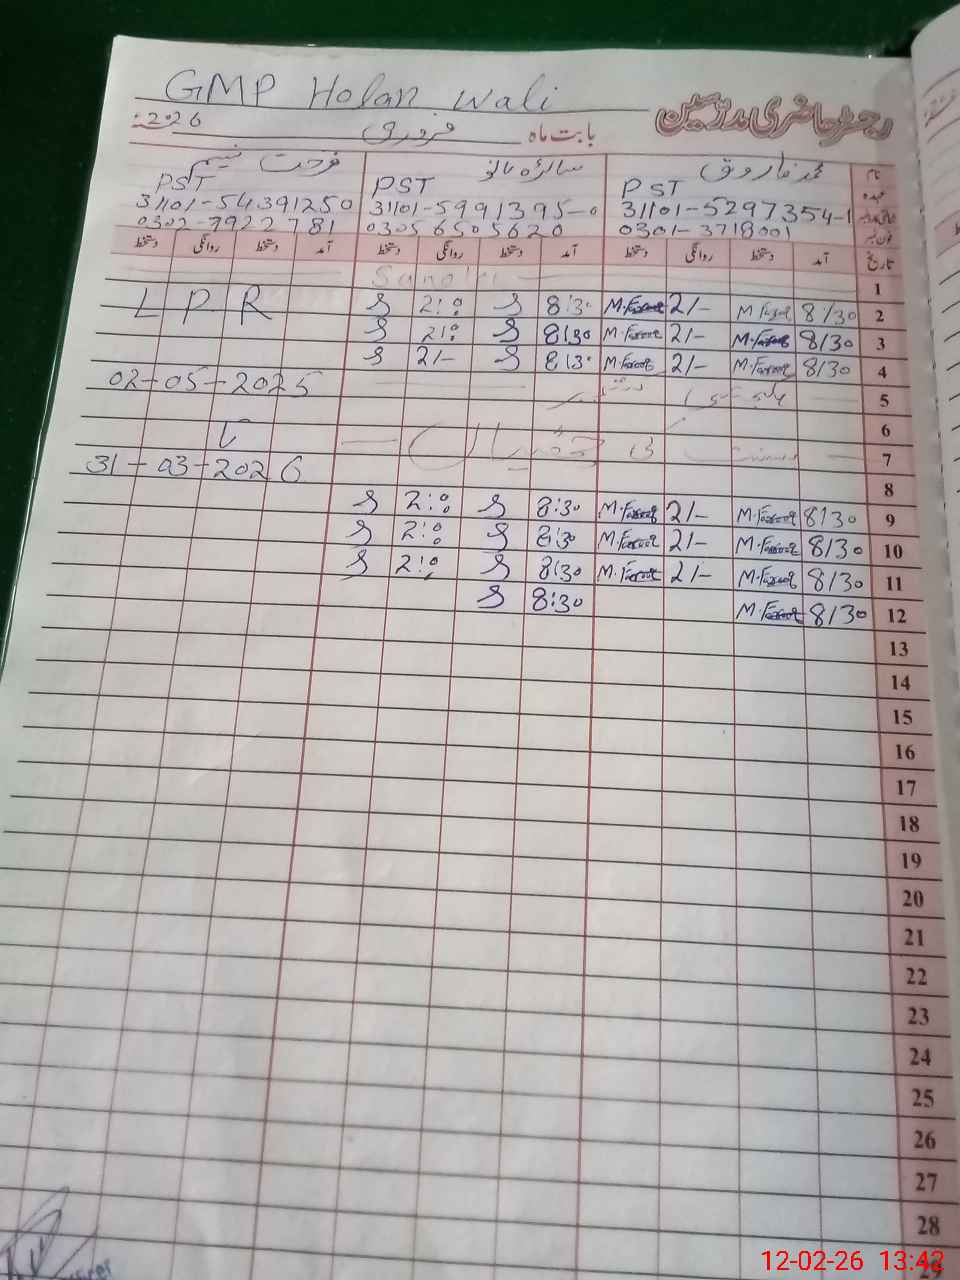 GMP Holan Wali
رجسٹر حاضری مدرسین
بابت ماہ فروری 2026
نام محمد فاروق سائرہ فرحت نسیم
عہدہ PST PST PST
31101-5297354-1 31101-5991395-0 31101-54391250
فون نمبر 0301-3718001 03056505620 0302-7922781
تاریخ آمد دستخط روانگی دستخط آمد دستخط روانگی دستخط آمد دستخط روانگی دستخط
1 Sunday
2 8/30 M.Farooq 2/- M.Farooq 8:30 2:00 L P R
3 8/30 M.Farooq 2/- M.Farooq 8:30 2:00
4 8/30 M.Farooq 2/- M.Farooq 8:30 2/-
5 02-05-2025
6
7 31-03-2026
8
9 8/30 M.Farooq 2/- M.Farooq 8:30 2:00
10 8/30 M.Farooq 2/- M.Farooq 8:30 2:00
11 8/30 M.Farooq 2/- M.Farooq 8:30 2:00
12 8/30 M.Farooq 8:30
13
14
15
16
17
18
19
20
21
22
23
24
25
26
27
28
29
12-02-26 13:42